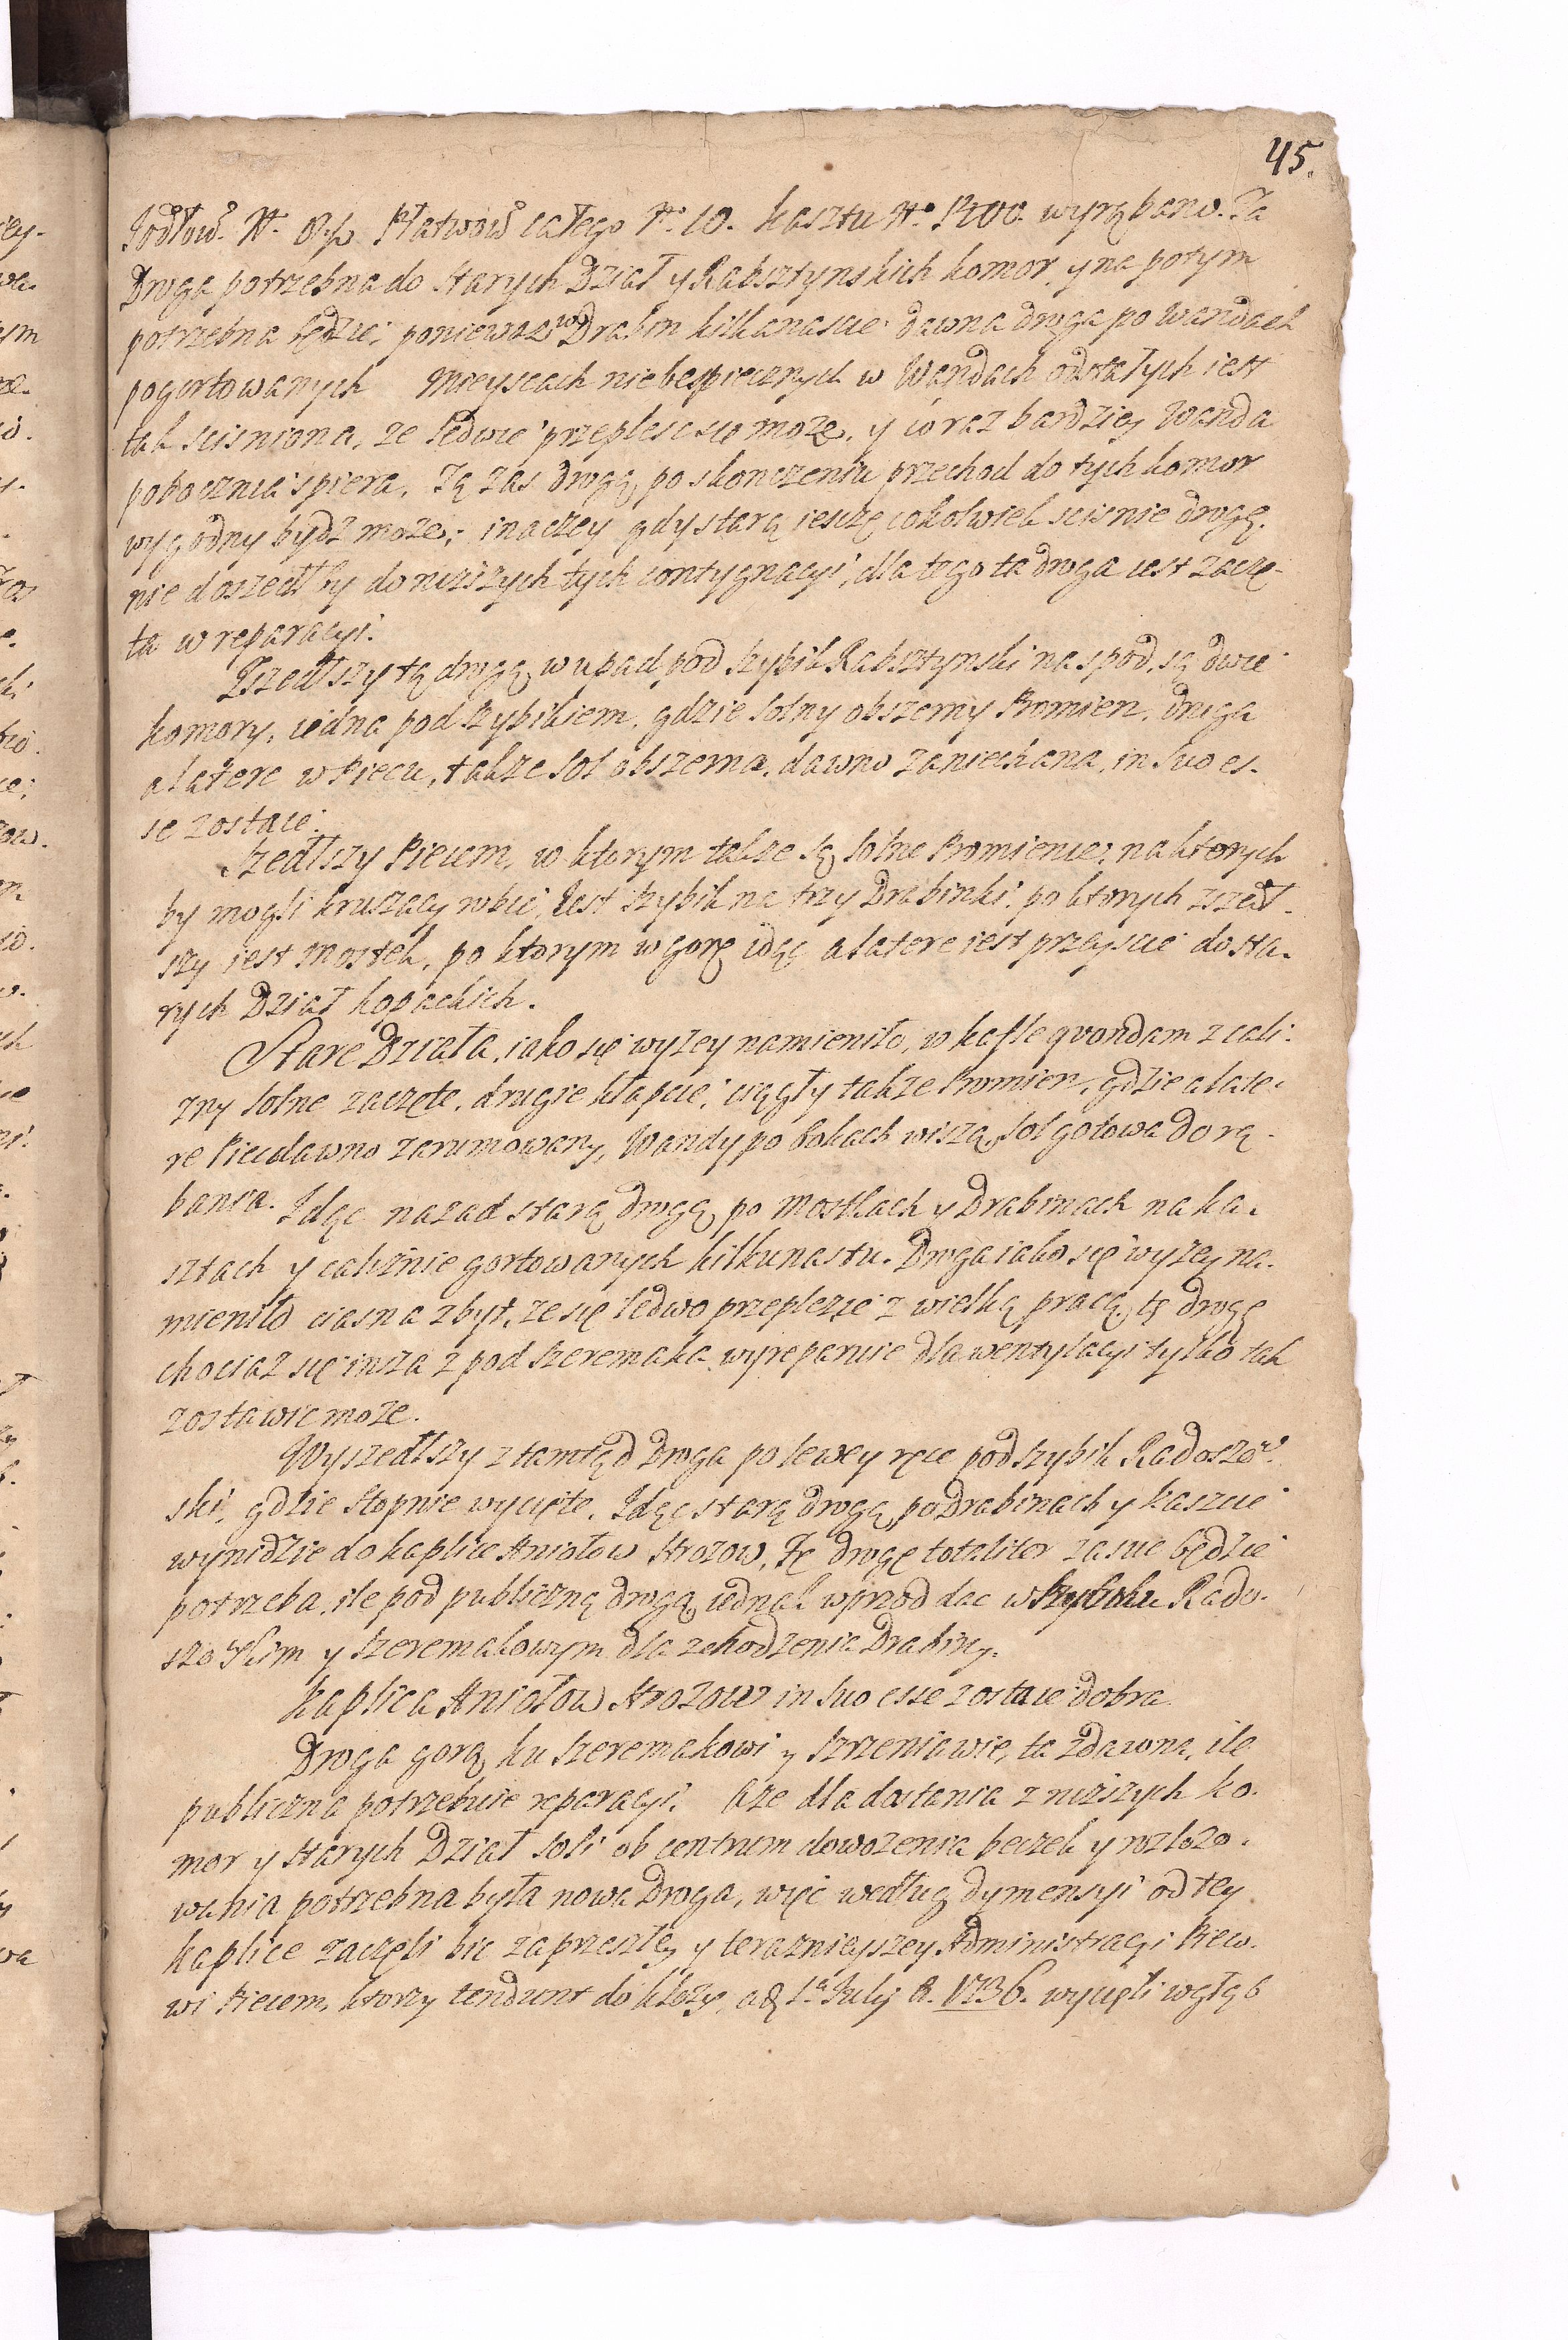 45.
Jodłow. N. 8½ Płatwow całego N. 10. kasztu N. wyrąbano. Ta
Droga potrzebna do Starych Dział y Rabsztynskich komor, y na potym
potrzebna będzie; poniewaz Drabin kilkanascie dawna droga po Wandach
pogortowanych mieyscach niebespiecznych w Wandach odstałych iest
tak scisniona, ze ledwie przeplesc się moze, y coraz bardziey Wanda
pobocznia spiera. Tą zas drogą po skonczeniu przechod do tych komor
wygodny bydz moze; inaczey gdy starą ieszcze cokolwiek scisnie drogę,
nie doszedłby do nizszych tych contygnacyi, dla tego ta droga iest zaczę-
ta w reparacyi.
Zszedłszy tą drogą w upad pod szybik Rabsztynski na spod, są dwie
komory, iedna pod szybikiem, gdzie solny obszerny Promien, druga
a latere w Piecu, takze sol obszerna, dawno zaniechana, in suo es-
se zostaie.
Szedłszy Piecem, w ktorym takze są solne Promienie; na ktorych
by mogli kruszacy robic, Iest szybik na trzy Drabinki, po ktorych zszedł-
szy iest mostek, po ktorym w gorę idąc a latere iest przeyscie do sta-
rych Dział kopackich.
Stare Działa, iako się wyzey namieniło, w kaszcie quondam z cali-
zny solne zaczęte, drugie kłapcie, ciągły takze Promien, gdzie a late-
re Piec dawno zarumowany, Wandy po bokach wiszą, sol gotowa do rą-
bania. Idąc nazad starą drogą po mostkach y Drabinach na ka-
sztach y caliznie gortowanych kilkunastu. Droga iako się wyzey na-
mieniło ciasna zbyt, ze się ledwo przeplezie z wielką pracą, tę drogę
chociaz się insza z pod Szeremaka wyreparuie dla wentylacyi tylko tak
zostawic moze.
Wyszedłszy ztamtąd Droga po lewey ręce pod szybik Radoszow-
ski, gdzie stopnie wycięte. Idąc starą drogą po Drabinach y kaszcie
wynidzie do kaplice Aniołow Strozow, Tę drogę totaliter zasuc będzie
potrzeba, ile pod publiczną drogą iednak wprzod dac w Szybiku Rado-
szowskim y Szeremakowym dla zchodzenia Drabiny.
Kaplica Aniołow Strozow in suo esse zostaie dobra
Droga gorą ku Szeremakowi y Srzeniawie, ta zdawna, ile
publiczna potrzebuie reparacyi. A ze dla dostania z nizszych ko-
mor y Starych Dział soli ob centrum dowozenia beczek y rozłozo-
wania potrzebna była nowa Droga, więc według dymensyi od tey
kaplice zaczęli bic za przeszłey y terazniejszey Administracyi Piew.
wi Piecem, ktorzy tendunt do kłozy, ad 1ª Julij A. 1736. wycięli wgłąb